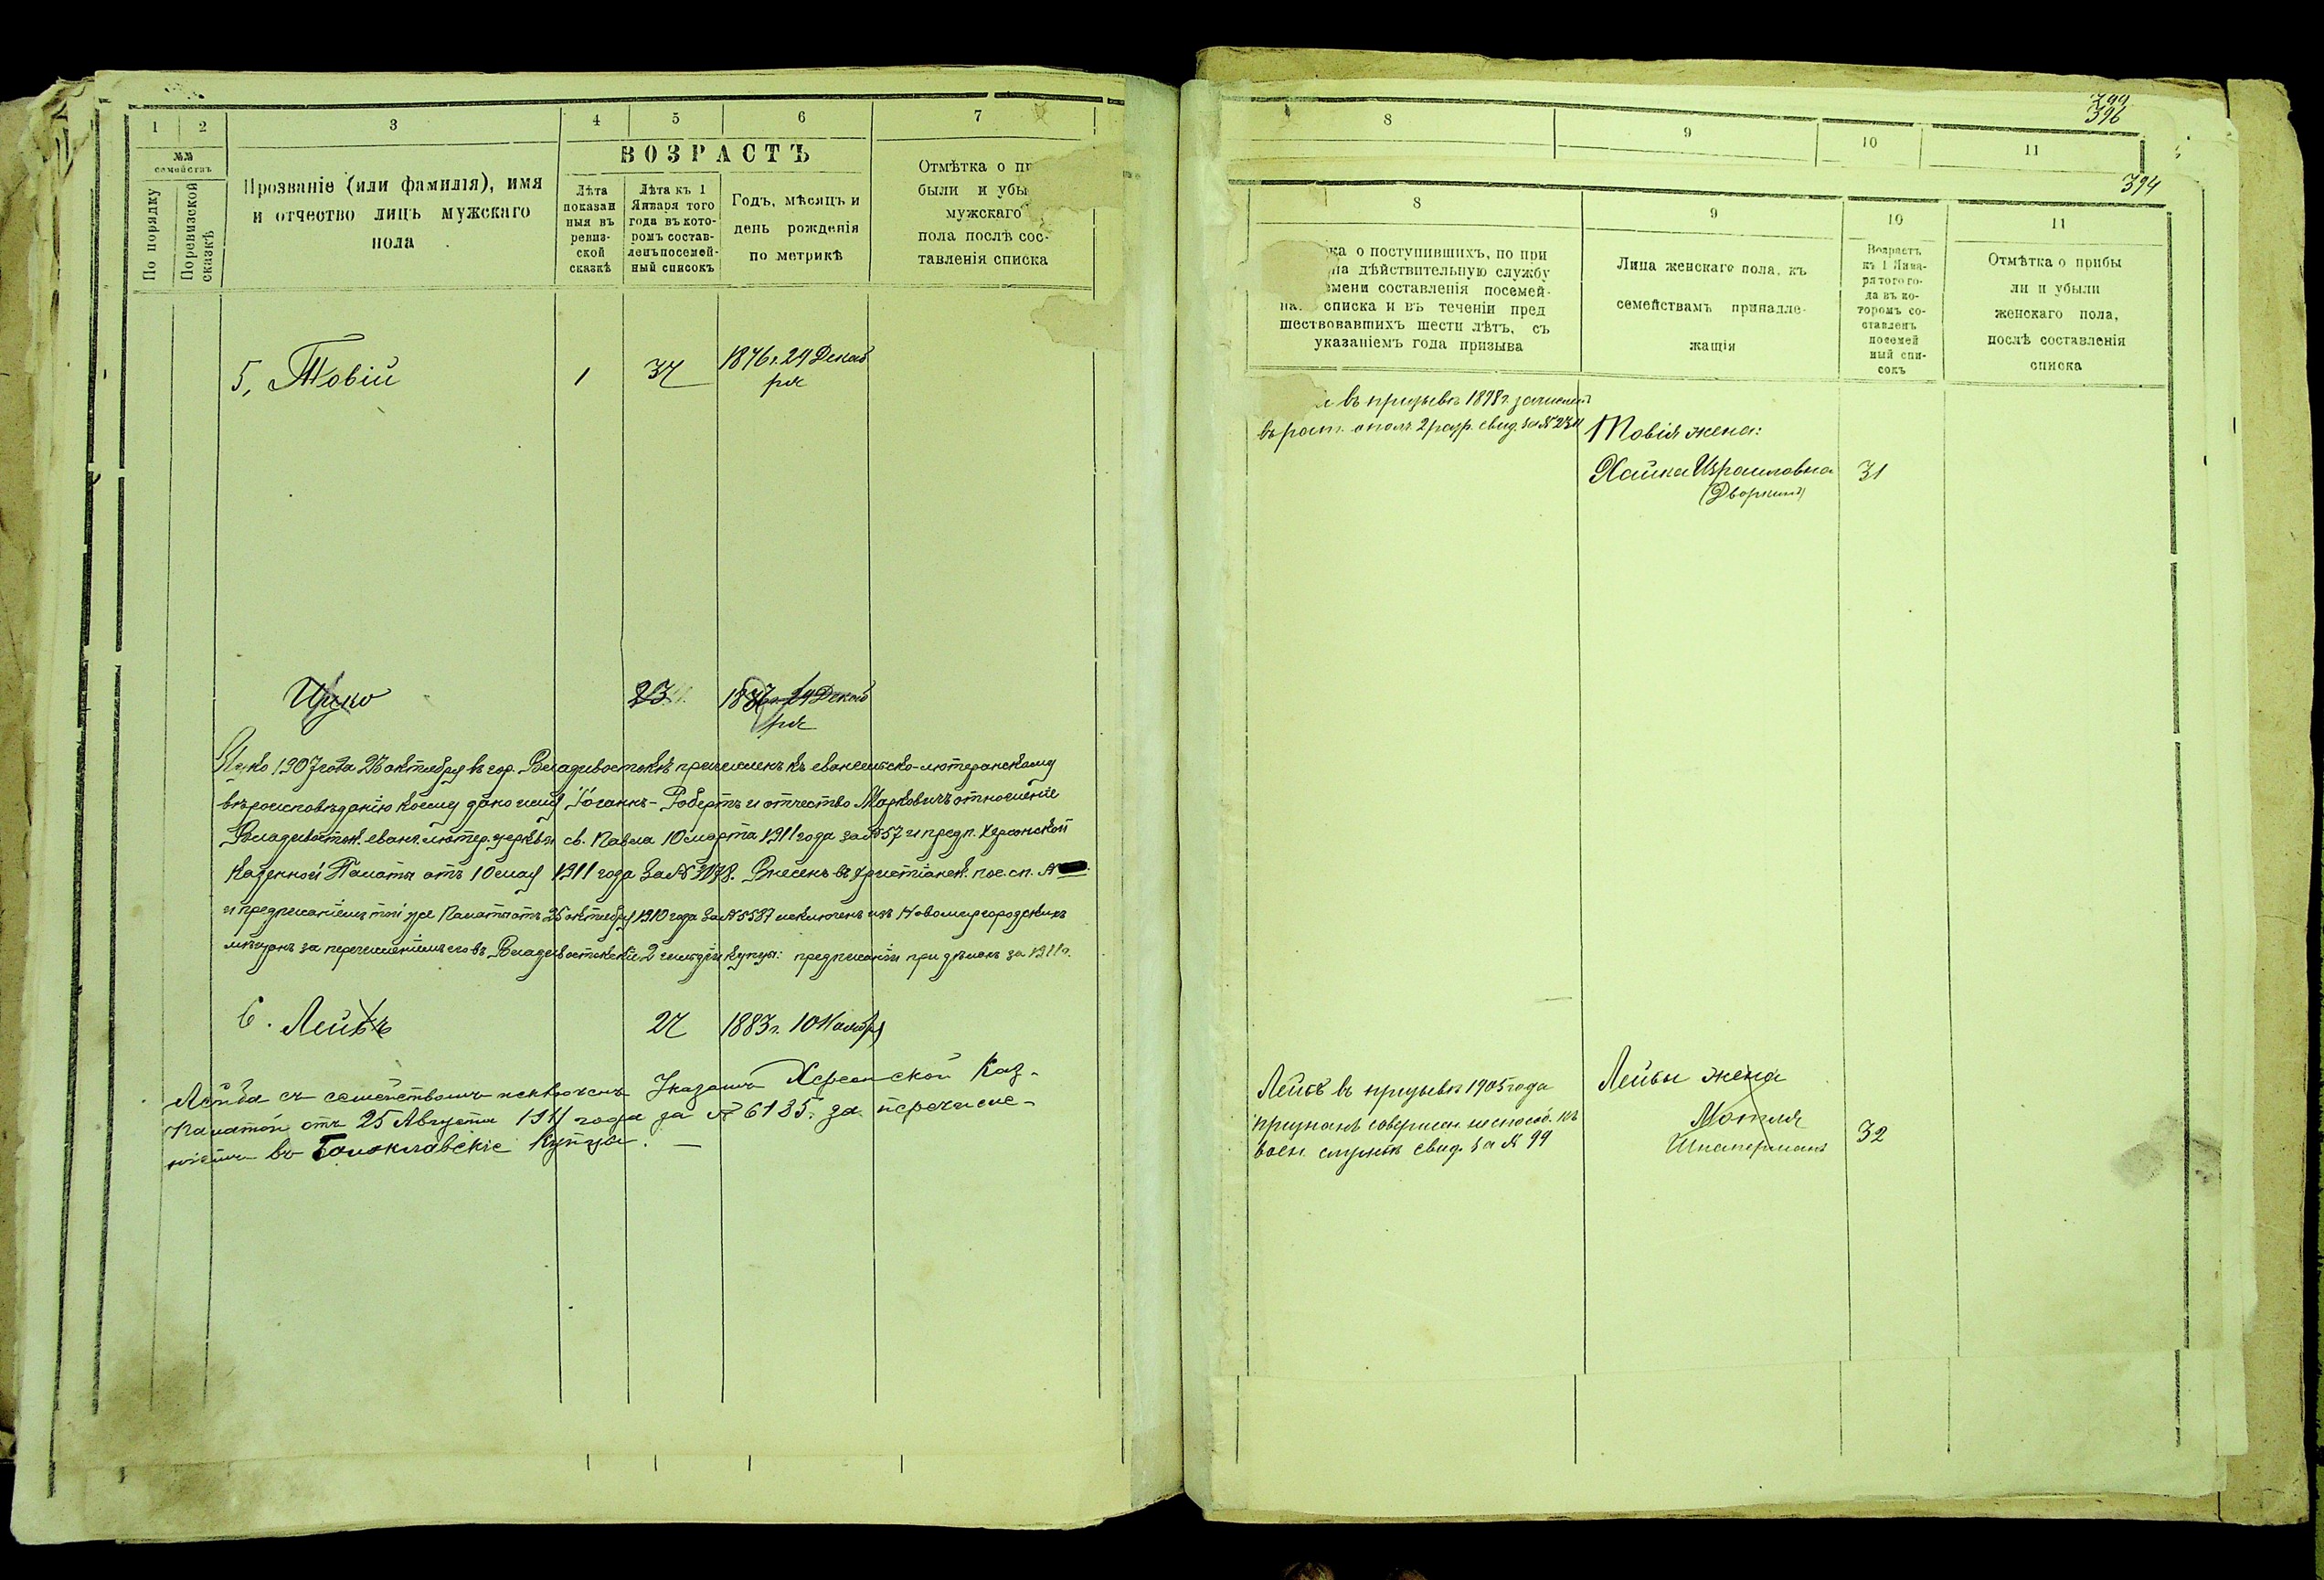 1 2 3 4 5 6 7
№№ семействъ
По порядку
По ревизской сказкѣ
Прозваніе (или фамилія), имя
и отчество лицъ мужскаго
пола
ВОЗРАСТЪ
Лѣта
показан
ныя въ
ревиз-
ской
сказкѣ
Лѣта къ 1
Января того
года въ кото-
ромъ состав-
ленъ посемей-
ный списокъ
Годъ, мѣсяцъ и
день рожденія
по метрикѣ
Отмѣтка о пр
были и убы
мужскаго
пола послѣ сос-
тавленія списка
5, Товій 1 34 1876 г. 24 Декаб
ря
Ицко 23 24 Декаб
ря
Ицко 1907 года 28 октября въ гор. Владивостокѣ причисленъ къ евангельско-лютеранскому
вѣроисповѣданію коему дано имя Іоганнъ-Робертъ и отчество Марковичъ отношеніе
Владивосток. еванг. лютер. церкви св. Павла 10 марта 1911 года за № 57 и предп. Херсонской
Казенной Палаты отъ 10 мая 1911 года за № Внесенъ въ христіанск. пос. сп. №
и предписаніемъ той же Палаты отъ 25 октября 1910 года за № 5587 исключенъ изъ Новомиргородскихъ
мѣщанъ за перечисленіемъ его въ Владивостокскіе 2 гильдіи купцы: предписанія при дѣлахъ за 1911 г.
6. Лейбъ 27 1883 г. 10 Ноября
Лейба съ семействомъ исключенъ Указомъ Херсонской Каз-
Палатой отъ 25 Августа 1911 года за № 6135. за перечисле-
ніемъ въ Купцы.
396
8 9 10 11
394
8 9 10 11
ка о поступившихъ, по при
на дѣйствительную службу
мени составленія посемей-
на списка и въ теченіи пред
шествовавшихъ шести лѣтъ, съ
указаніемъ года призыва
Лица женскаго пола, къ
семействамъ принадле-
жащія
Возрастъ
къ 1 Янва-
ря того го-
да въ ко-
торомъ со-
ставленъ
посемей
ный спи-
сокъ
Отмѣтка о прибы
ли и убыли
женскаго пола,
послѣ составленія
списка
въ призывѣ 1898 г. зачислен
въ рат. ополч. 2 разр. свид. за №
Товія жена:
Хайка Израиловна 31
(Дворкинъ)
Лейбъ въ призывѣ 1905 года
признанъ совершен. неспособ. къ
воен. службѣ свид. за № 99
Лейбы жена
Мотля
Шнаперманъ 32